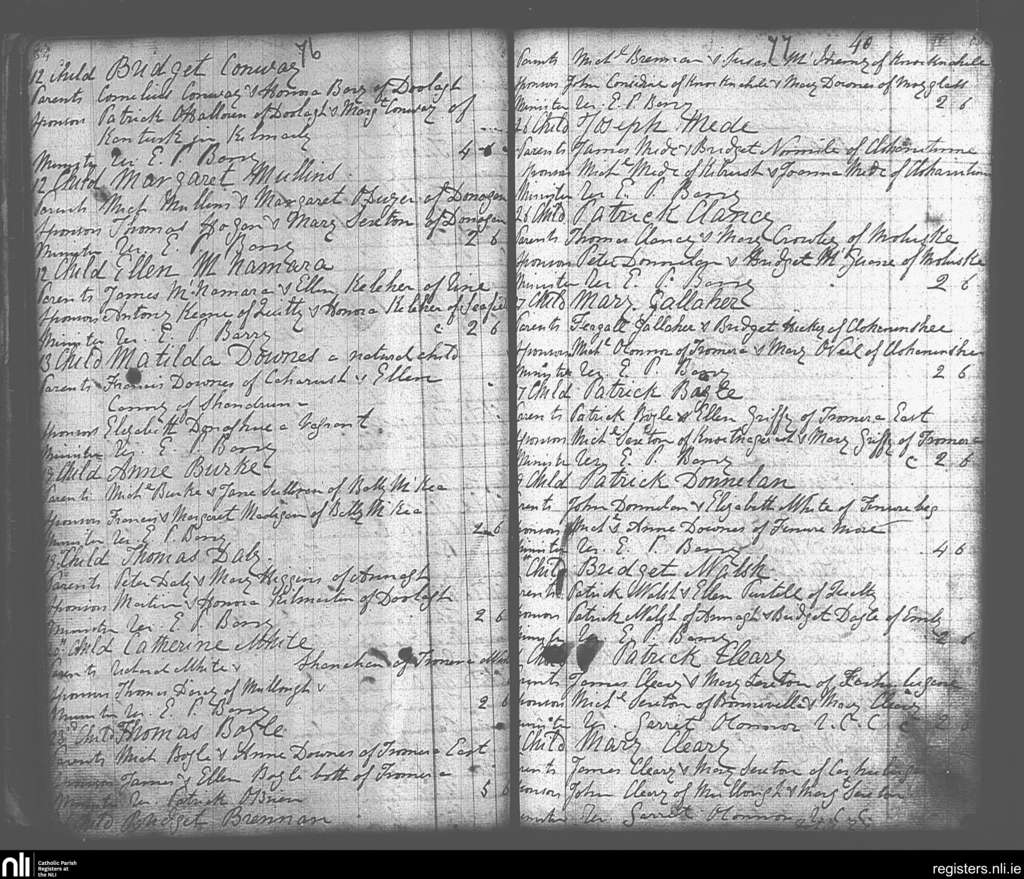 76
12 Child Budget Conway
Parents Cornelius Conway & Honora Barry of Doolagh
Sponsors Patrick OHalloran of Doolagh & Margt Conway of
Kanturk in Kilmaely
Minister Ur. E. P. Barry 4 6
12 Child Margaret Mullins
Parents Mich Mullins & Margaret ODwyer of Donogan
Sponsors Thomas Hogan & Mary Sexton of Donogan
Minister Ur. E. P. Barry 2 6
12 Child Ellen McNamara
Parents James McNamara & Ellen Keleher of
Sponsors Antony Keane of Quilty & Honora Keleher of Seafield
Minister Ur. E. P. Barry c 2 6
13 Child Matilda Downes a natural child
Parents Francis Downes of Caharush & Ellen
of Shandrum
Sponsors Elizabeth Donoghue a Vagrant
Minister Ur. E. P. Barry
Child Anne Burke
Parents Michl Burke & Jane Sullivan of Bally McKea
Sponsors Francis & Margaret Madigan of Bally McKea
Minister Ur. E. P. Barry 2 6
Child Thomas Daly
Parents Peter Daly & Mary Higgins of Annagh
Sponsors Martin & Honora Kilmartin of Doolagh
Minister Ur. E. P. Barry 2 6
Child Catherine White
Parents Richard White & Shanahan of Tromera
Sponsors Thomas of Mullough &
Minister Ur. E. P. Barry 2 6
Child Thomas Boyle
Parents Mich Boyle & Anne Downes of Tromera East
James & Ellen Boyle both of Tromera
Minister Ur. Patrick OBrien 5
Child Bridget Brennan
77 40
Parents Michl Brennan & Susan of Knocknahila
Sponsors John Considine of Knocknahila & Mary Downes of Moyglass
Minister Ur. E. P. Barry 2 6
26 Child Joseph Mede
Parents James Mede & Bridget Normile of
Sponsors Michl Mede of Kilrush & Joanna Mede of
Minister Ur. E. P. Barry
26 Child Patrick Clancy
Parents Thomas Clancy & Mary Crowley of Moluske
Sponsors Peter Donnelan & Bridget McGuane of Moluske
Minister Ur. E. P. Barry 2 6
7 Child Mary Gallaher
Parents Feagall Gallaher & Bridget Hickey of Clohaunshee
Sponsors Michl OConnor of Tromera & Mary ONeil of Clohaunshee
Minister Ur. E. P. Barry 2 6
7 Child Patrick Boyle
Parents Patrick Boyle & Ellen Griffy of Tromera East
Sponsors Michl Sexton of & Mary Griffy of Tromera
Minister Ur. E. P. Barry c 2 6
Child Patrick Donnelan
Parents John Donnelan & Elizabeth White of Finure beg
Sponsors Michl & Anne Downes of Finure more
Minister Ur. E. P. Barry 4 6
Child Bridget Walsh
Parents Patrick Walsh & Ellen Purtill of Quilty
Sponsors Patrick Walsh of Annagh & Bridget Doyle of Emly
Minister Ur. E. P. Barry 2 6
Child Patrick Cleary
Parents James Cleary & Mary Sexton of
Sponsors Michl Sexton of & Mary Cleary
Minister Ur. Garret OConnor R. C. C c 2
Child Mary Cleary
Parents James Cleary & Mary Sexton of
Sponsors John Cleary of Mullough & Margt Sexton
Minister Ur. Garret OConnor
nli
Catholic Parish
Registers at
the NLI
registers.nli.ie